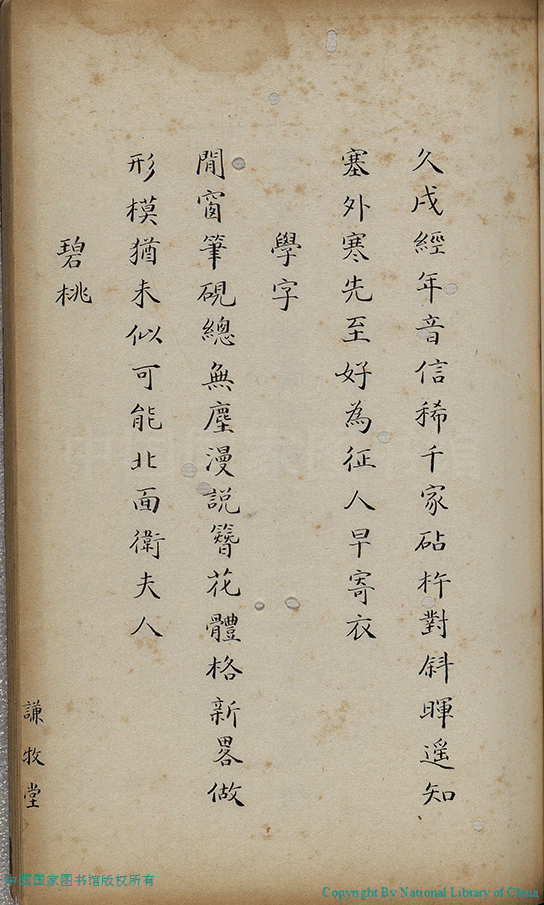 久戍經年音信稀千家砧杵對斜暉遥知
塞外寒先至好為征人早寄衣
學字
閒窗筆硯總無塵漫説簪花體格新畧做
形模猶未似可能北面衛夫人
碧桃
謙牧堂
中国国家图书馆版权所有
Copyright By National Library of China